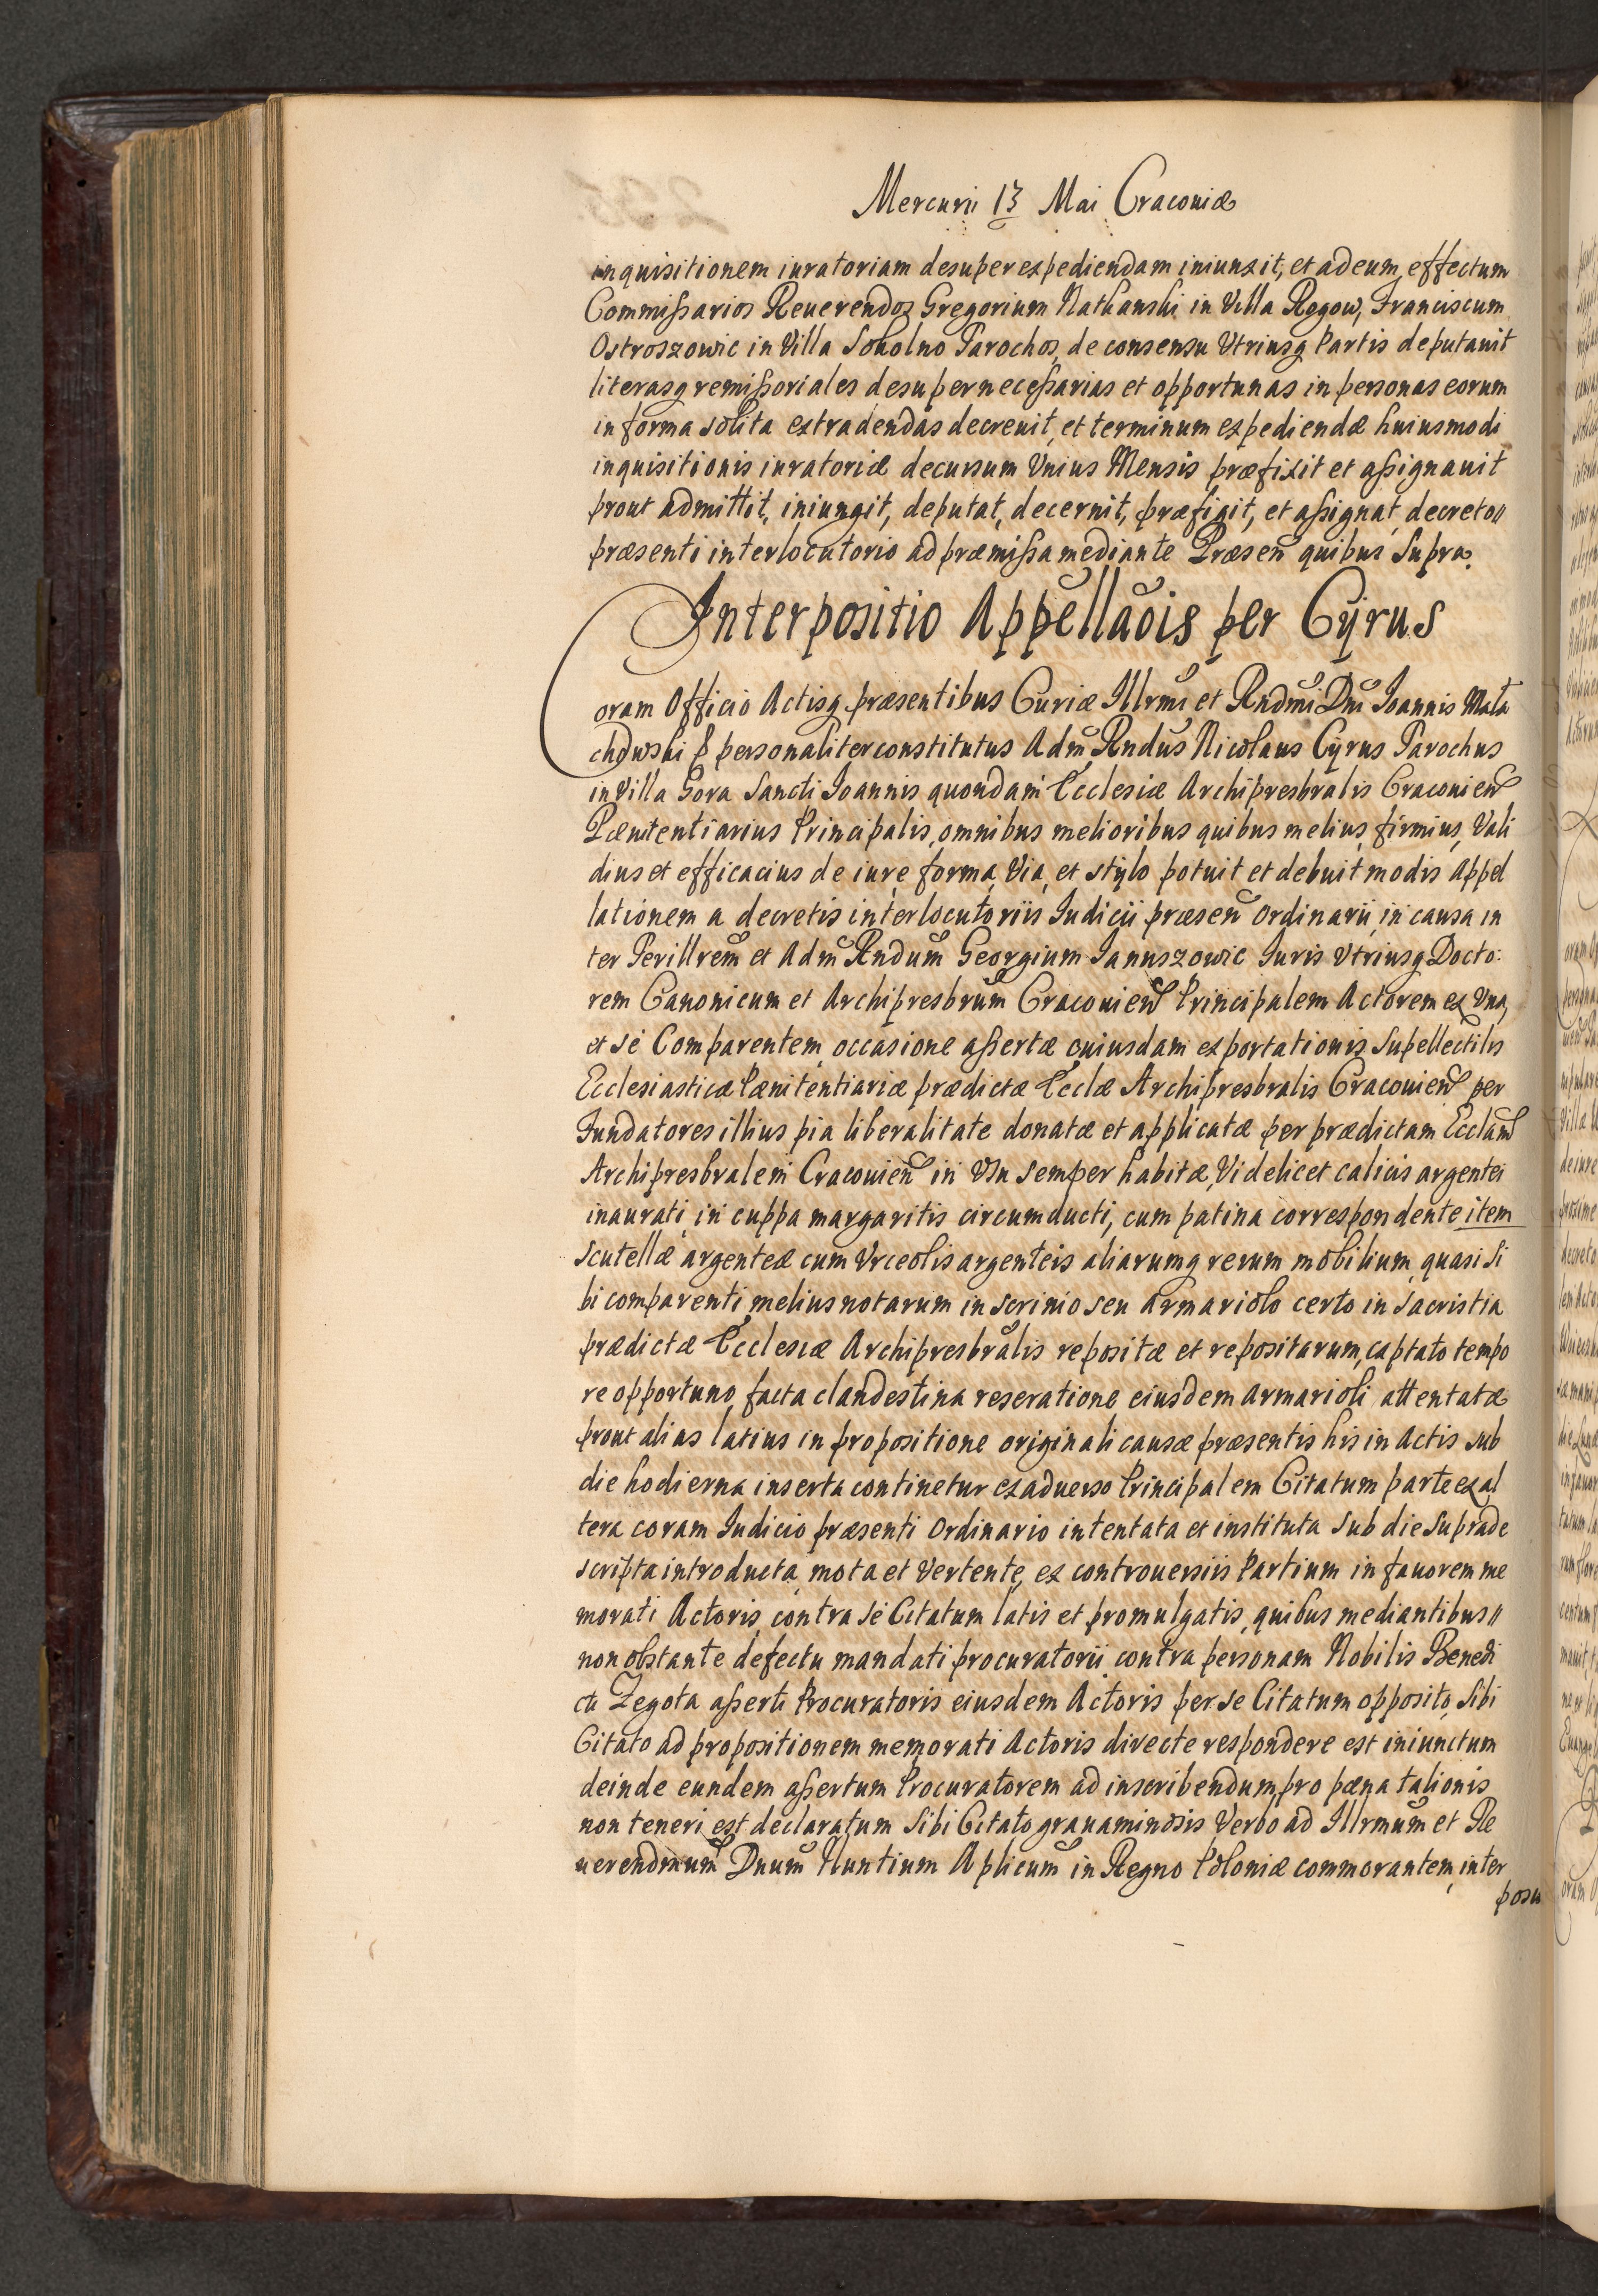 Mercurii 13 Mai Cracoviæ
inquisitionem iuratoriam desuper expediendam iniunxit, et ad eum, effectum
Commißarios Reuerendos Gregorium Nathanski in Villa Rogow, Franciscum
Ostroszowic in Villa Sokolno Parochos, de consensu Vtriusq Partis deputauit
literasq remißoriales desuper neceßarias et opportunas in personas eorum
in forma solita extradendas decreuit, et terminum expediendæ huiusmodi
inquisitionis iuratoriæ decursum Vnius Mensis præfixit et aßignauit
prout admittit, iniungit, deputat, decernit, præfigit, et aßignat decreto//
præsenti interlocutorio ad præmißa mediante Præsen quibus Supra.
Interpositio Appellaõis per Cÿrus
Coram Officio Actisq præsentibus Curiæ Illrmi et Rndmi Dni Ioannis Mała
chowski p personaliter constitutus Adm Rndus Nicolaus Cÿrus Parochus
in Villa Gora Sancti Ioannis quondam Ecclesiæ Archipresbralis Cracouien
Pænitentiarius Principalis, omnibus melioribus quibus melius, firmius, Vali
dius et efficacius de iure, forma, Via, et stÿlo potuit et debuit modis Appel
lationem a decretis interlocutoriis Iudicii præsen Ordinarii in causa in
ter Perillrem et Adm Rndum Georgium Ianuszowic Iuris Vtriusq Docto:
rem Canonicum et Archipresbrum Cracouien Principalem Actorem ex Vna,
et se Comparentem occasione aßertæ cuiusdam exportationis Supellectilis
Ecclesiasticæ Pænitentiariæ prædictæ Ecclæ Archipresbralis Cracouien per
Fundatores illius pia liberalitate donatæ et applicatæ per prædictam Ecclam
Archipresbralem Cracouien in Vsu semper habitæ, Videlicet calicis argentei
inaurati, in cuppa margaritis circumducti, cum patina correspondente item
Scutellæ argenteæ cum Vrceolis argenteis aliarumq rerum mobilium, quasi Si
bi comparenti, melius notarum in scrinio seu armariolo certo in Sacristia
prædictæ Ecclesiæ Archipresbralis repositæ et repositarum, captato tempo
re opportuno, facta clandestina reseratione eiusdem armarioli attentatæ
prout alias latius in propositione originali causæ præsentis his in Actis sub
die hodierna inserta continetur ex aduerso Principalem Citatum parte ex al
tera coram Iudicio præsenti Ordinario intentata et instituta Sub die Suprade
scripta introducta, mota et Vertente, ex controuersiis Partium in fauorem me
morati Actoris, contra se Citatum latis et promulgatis, quibus mediantibus //
non obstante defectu mandati procuratorii contra personam Nobilis Benedi
cti Zegota aßerti Procuratoris eiusdem Actoris per se Citatum opposito, Sibi
Citato ad propositionem memorati Actoris directe respondere est iniunctum
deinde eundem aßertum Procuratorem ad inscribendum pro pæna talionis
non teneri est declaratum Sibi Citato grauaminosis Verbo ad Illrmum et Re
uerendmum Dnum Nuntium Aplicum in Regno Poloniæ commorantem, inter
posu